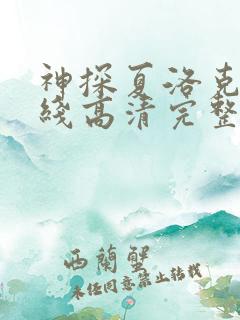 神探夏洛克
线高清完整
西蘭蟹
未经同意禁止转载